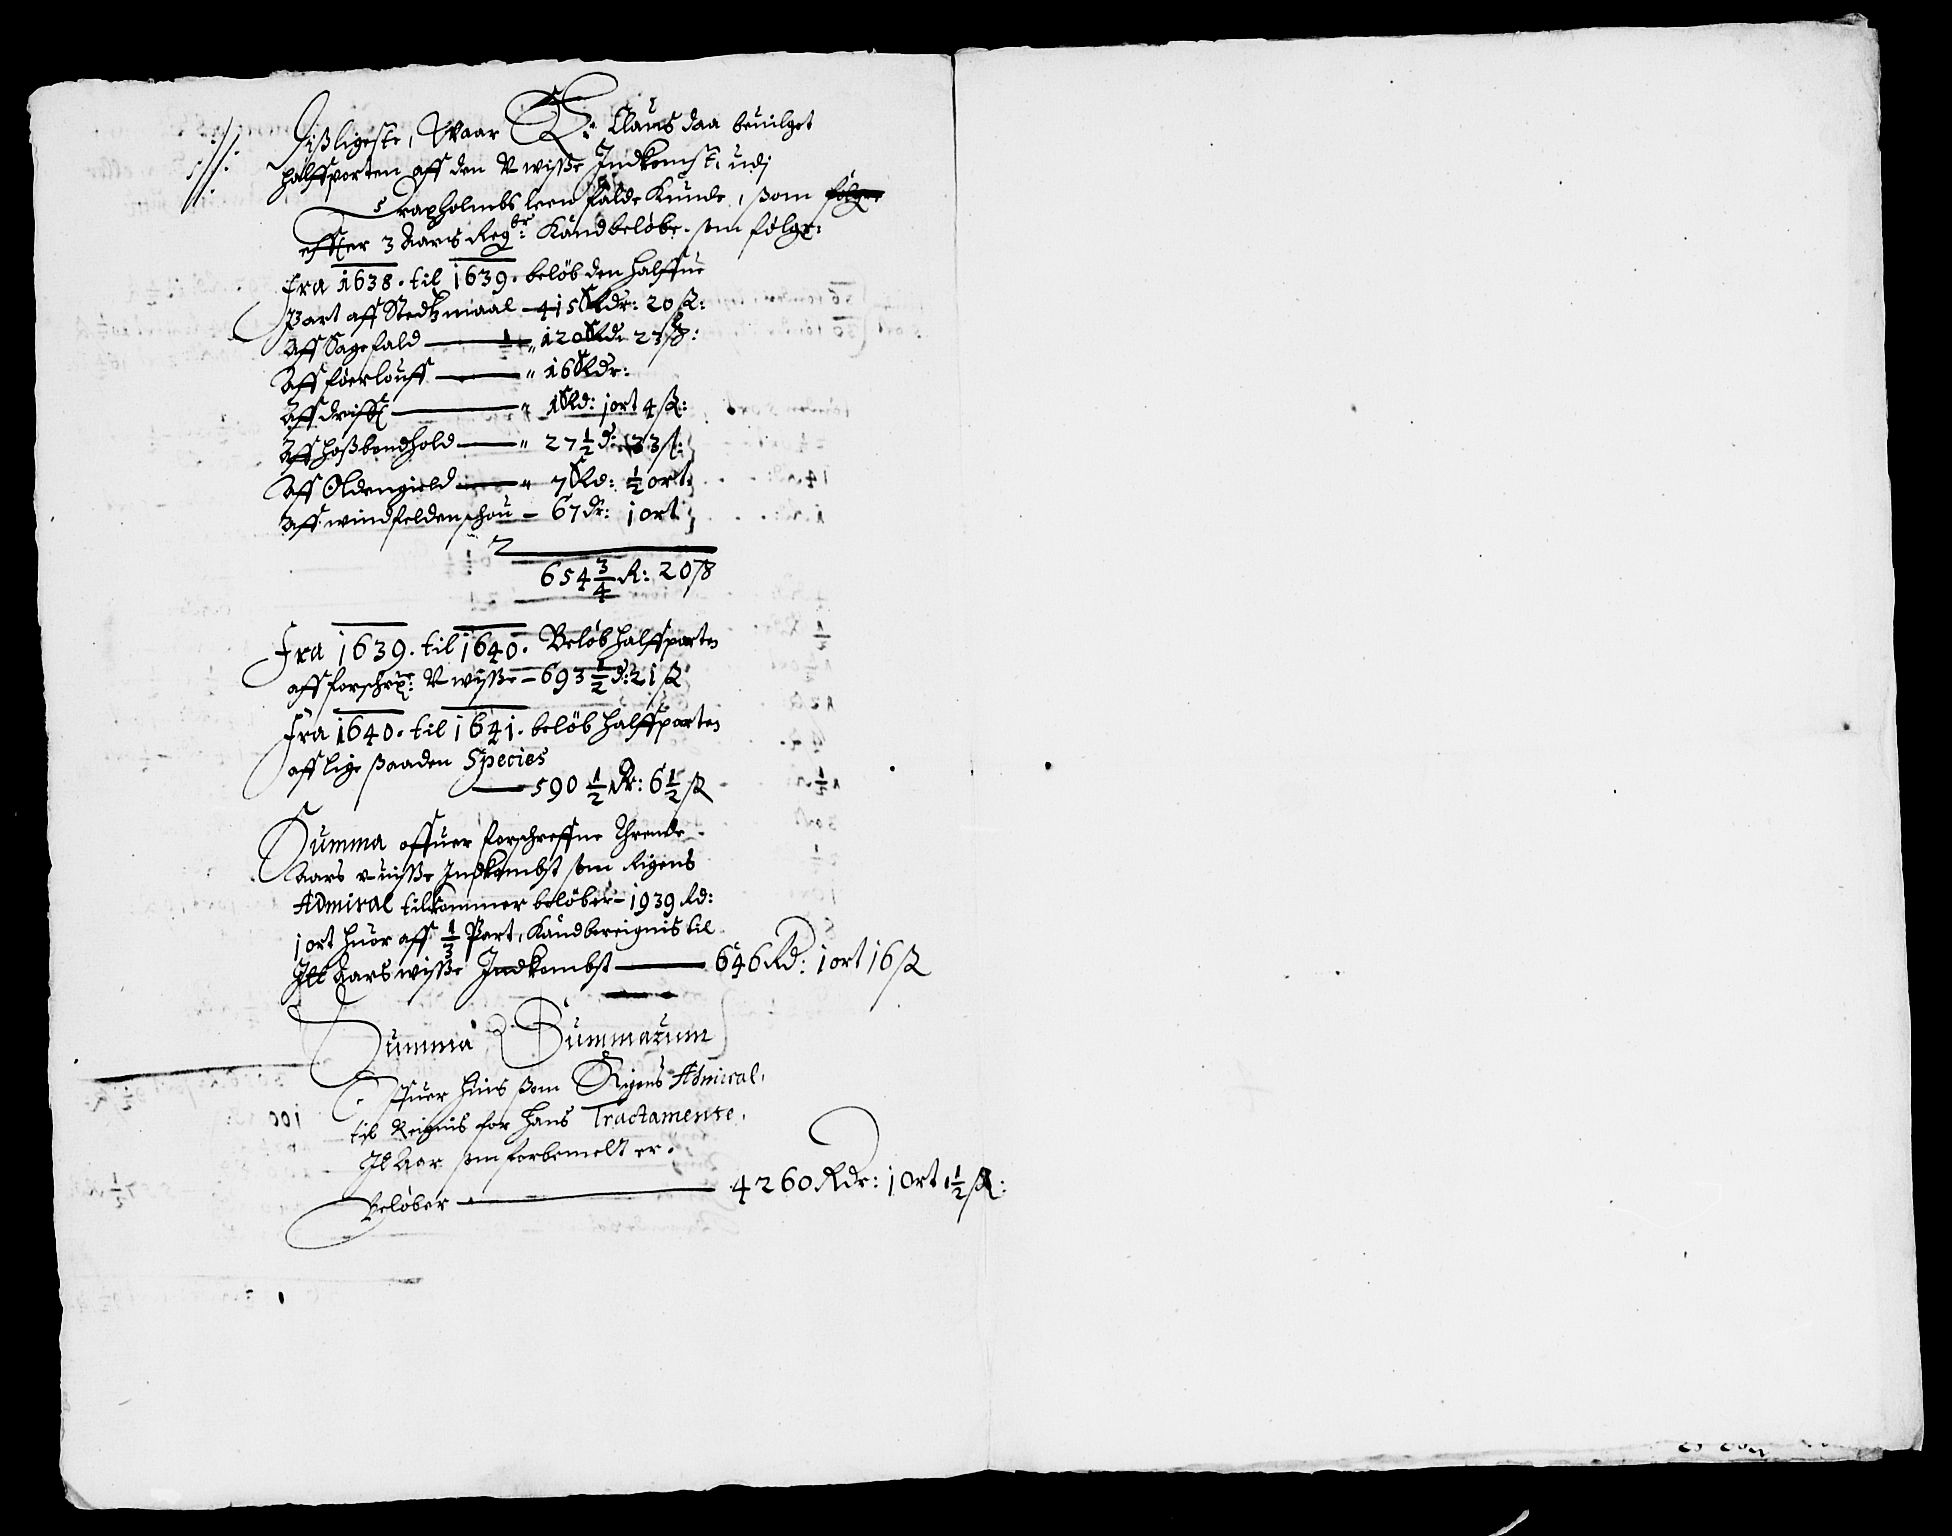 Dißligeste, Waar H: Claus daa beuilget
halffparten aff den V-wiße Indkomst, udj
Trapholmbs leen falde Kunde, ßom følger
effter 3 Aars Regbr: Kand beløbe. som følger:
Fra 1638. til 1639. beløb den halffue
Part aff Stedtzmaal - 415 Rdr: 20 ß:
Aff Sagefald - 120 Rd: 23 ß:
Aff føerlouff - 16 Rdr:
Aff drifft - 1 Rd: 1 ort 4 ß:
Aff hoßbondhold - 27 1/2 d: 33 ß:
Aff Oldengield - 7 Rd: 1/2 ort.
Aff windfelden schou - 67 dr: 1 ort
654 3/4 R: 20 ß
Fra 1639. til 1640. Beløb halffparten
aff forschr: V-wyße - 693 1/2 d: 21 ß
Fra 1640. til 1641. beløb halffparten
aff lige ßaaden Species
590 1/2 dr: 6 1/2 ß
Summa offuer forschreffne Thrende
Aars v-uiße Indkombst som Rigens
Admiral tilkommer beløber - 1939 Rd:
1 ort huor aff 1/3 Part, Kand bereignis til
Itt Aars wyße Indkombst - 646 Rd: 1 ort 16 ß
Summa Summarum
Offuer huis ßom Rigens Admiral,
til Reignis for hans Tractamente,
It Aar som forbemelt er.
Beløber - 4260 Rdr: 1 Ort 1 1/2 ß: